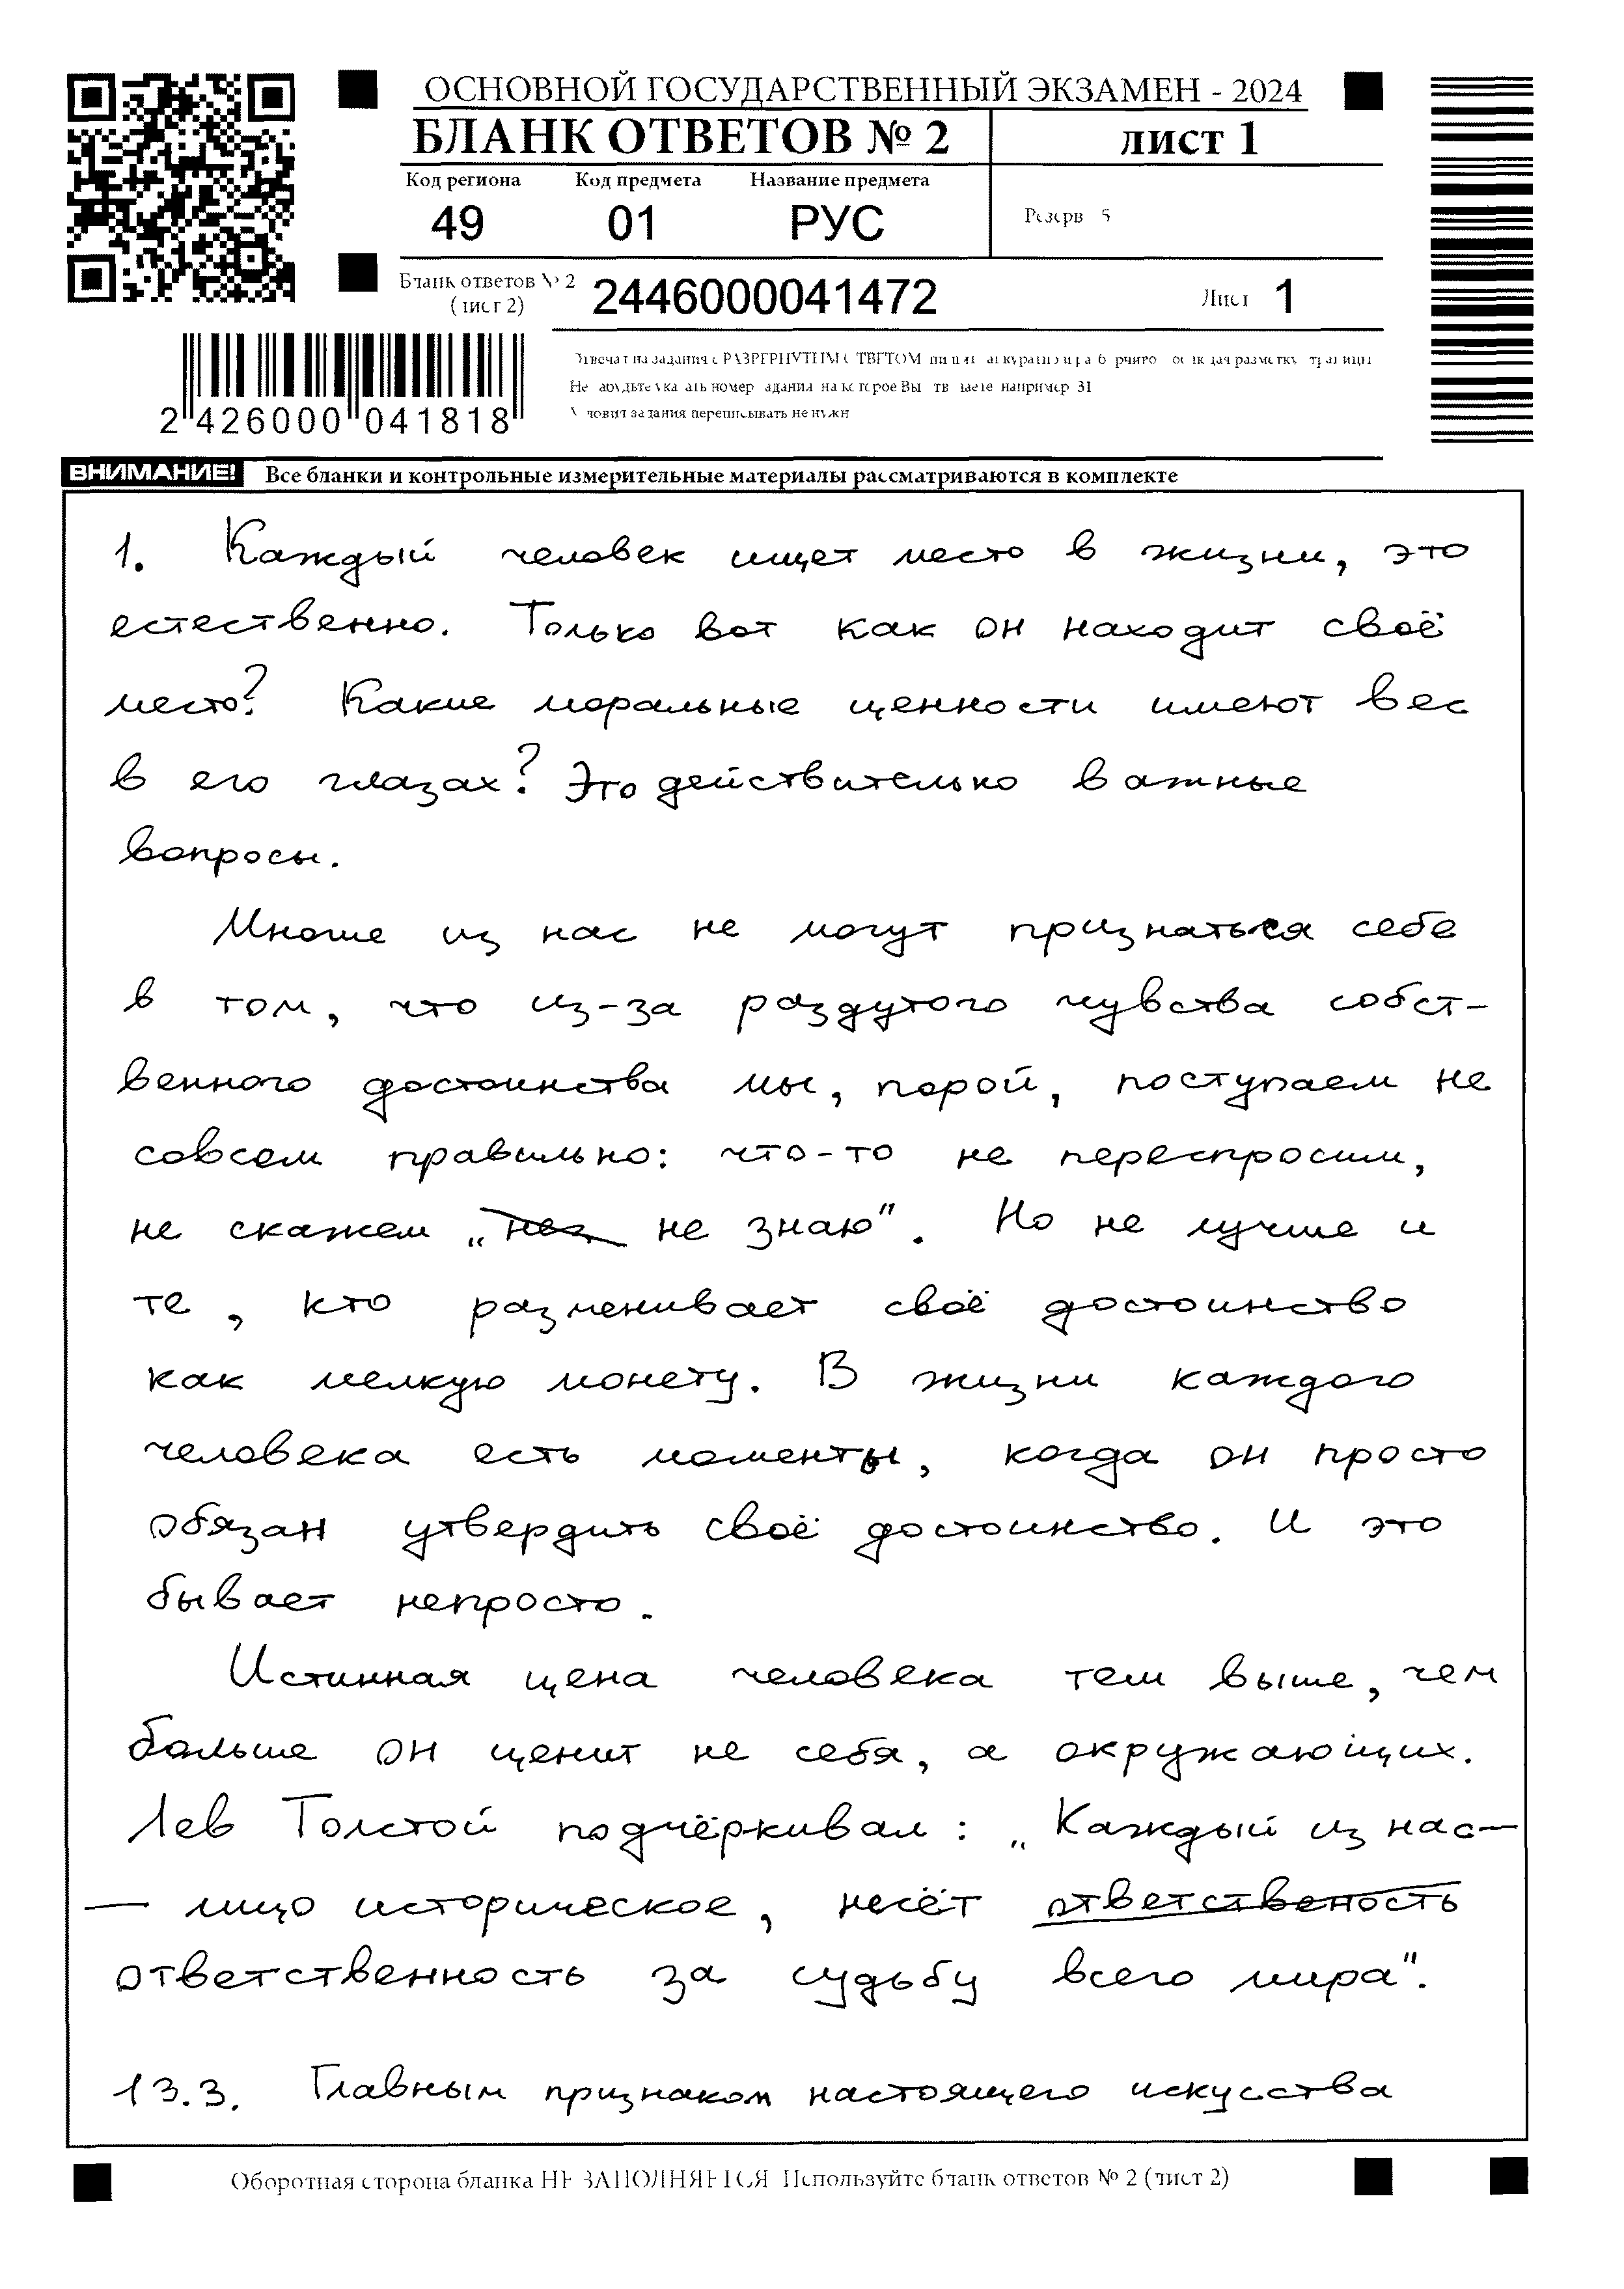 ОСНОВНОЙ ГОСУДАРСТВЕННЫЙ ЭКЗАМЕН - 2024
БЛАНК ОТВЕТОВ № 2
лист 1
Код региона Код предмета Название предмета
49 01 РУС
Резерв 5
Бланк ответов № 2
(лист 2)
2446000041472
Лист 1
2 426000 041818
Условия задания переписывать не нужн
ВНИМАНИЕ! Все бланки и контрольные измерительные материалы рассматриваются в комплекте
1. Каждый человек ищет место в жизни, это
естественно. Только вот как он находит своё
место? Какие моральные ценности имеют вес
в его глазах? Это действительно важные
вопросы.
Многие из нас не могут признаться себе
в том, что из-за раздутого чувства собст-
венного достоинства мы, порой, поступаем не
совсем правильно: что-то не переспросим,
не скажем „не знаю". Но не лучше и
те, кто разменивает своё достоинство
как мелкую монету. В жизни каждого
человека есть моменты, когда он просто
обязан утвердить своё достоинство. И это
бывает непросто.
Истинная цена человека тем выше, чем
больше он ценит не себя, а окружающих.
Лев Толстой подчёркивал: „Каждый из нас—
— лицо историческое, несёт ответственость
ответственность за судьбу всего мира".
13.3. Главным признаком настоящего искусства
Оборотная сторона бланка НЕ ЗАПОЛНЯЕТСЯ Используйте бланк ответов № 2 (лист 2)